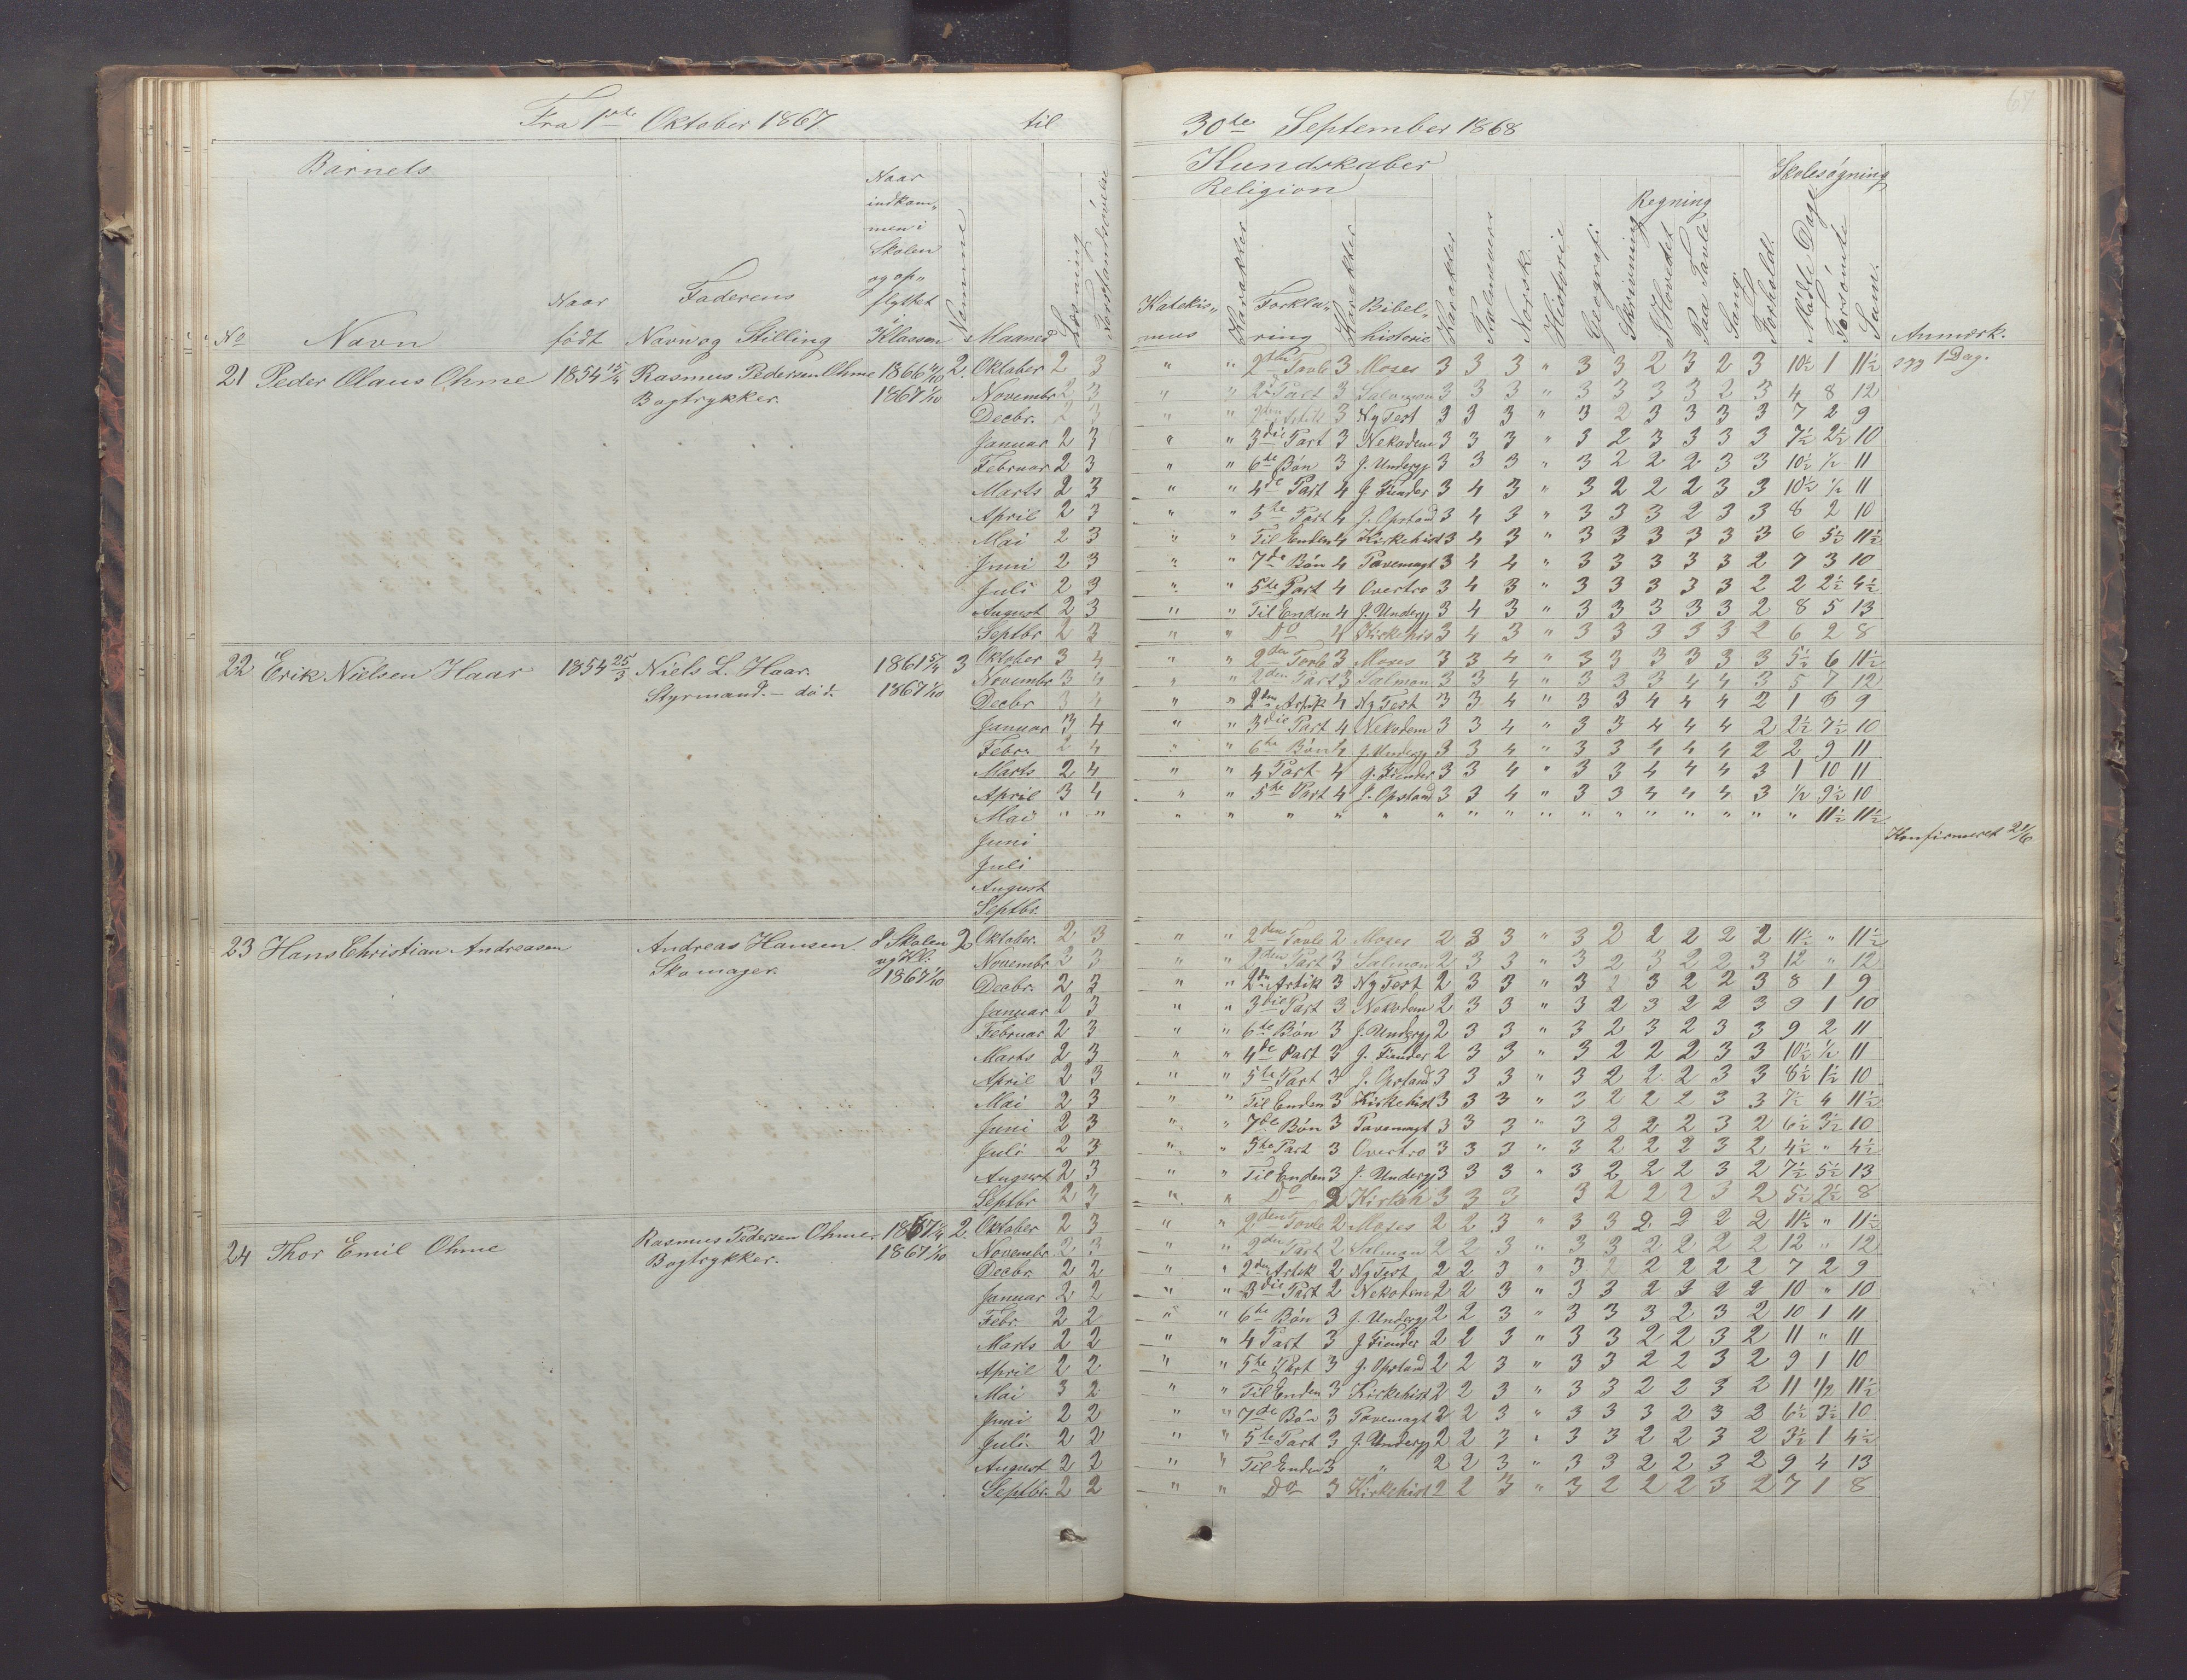 67
Fra 1ste Oktober 1867. til 30te September 1868
Barnets
Kundskaber
Skolesøgning
Religion
Regning
No Navn
Naar født
Faderens Navn og Stilling
Naar indkom„
men i
Skolen
og op„
flyttet
i
Klassen
Maaned
Læsning
Katekis„
mus
Karakter
Forkla„
ring
Karakter
Bibel„
historie
Karakter
Psalmevers
Norsk.
Historie
Geografi
Skrivning
I Hovedet
Paa Tavle
Sang
Forhold.
Mødte Dage
Forsømte
Sum.
Anmærk.
21 Peder Olaus Ohme 1854 Rasmus Pedersen Ohme 1866 2. Oktober 2 3 " " 2den Tavle 3 Moses 3 3 3 " 3 3 2 3 2 3 10½ 1 11½ syg 1 Dag.
Bogtrykker. 1867 1/10 Novembr 2 3 " " 2d Part 3 Salomon 3 3 3 " 3 3 3 3 2 3 4 8 12
Decbr. 2 3 " " 2den Artik 3 Ny Test 3 3 3 " 3 2 3 3 3 3 7 2 9
Januar 2 3 " " 3die Part 3 Nekodem 3 3 3 " 3 2 3 3 3 3 7½ 2½ 10
Februar 2 3 " " 6te Bøn 3 J. Undergj 3 3 3 " 3 2 2 2 3 3 10½ ½ 11
Marts 2 3 " " 4de Part 4 J. Fiender 3 4 3 " 3 2 2 2 3 3 10½ ½ 11
April 2 3 " " 5te Part 4 J. Opstand 3 4 3 " 3 3 3 2 3 3 8 2 10
Mai 2 3 " " Til Enden 4 Kirkehist 3 4 3 " 3 3 3 3 3 3 6 5½ 11½
Juni 2 3 " " 7de Bøn 4 Pavemagt 3 4 4 " 3 3 3 3 3 2 7 3 10
Juli 2 3 " " 5te Part 4 Overtro 3 4 3 " 3 3 3 3 3 2 2 2½ 4½
August 2 3 " " Til Enden 4 J. Undergj 3 4 3 " 3 3 3 3 3 2 8 5 13
Septbr 2 3 " " Do 4 Kirkehis 3 4 3 " 3 3 3 3 3 2 6 2 8
22 Erik Nielsen Haar 1854 25/3 Niels L. Haar. 1861 5/4 3 Oktober 3 4 " " 2den Tavle 3 Moses 3 3 4 " 3 3 3 3 3 3 5½ 6 11½
Styrmand. – død. 1867 1/10 Novembr 3 4 " " 2den Part 3 Salmon 3 3 4 " 3 3 3 4 4 3 5 7 12
Decbr 3 4 " " 2den Artik 4 Ny Test 3 3 4 " 3 3 4 4 4 2 1 8 9
Januar 3 4 " " 3die Part 4 Nekodem 3 3 4 " 3 3 4 4 4 2 2½ 7½ 10
Febr. 2 4 " " 6te Bøn 4 J. Undergj 3 3 4 " 3 3 4 4 4 2 2 9 11
Marts 2 4 " " 4 Part 4 J. Fiender 3 3 4 " 3 3 4 4 4 3 1 10 11
April 3 4 " " 5te Part 4 J. Opstand 3 3 4 " 3 3 4 4 4 3 ½ 9½ 10
Mai " " " " " " " " " " " " " " " " " " 11½ 11½
Juni Konfirmeret 21/6
Juli
August
Septbr.
23 Hans Christian Andreasen Andreas Hansen. I Skolen 2 Oktober. 2 3 " " 2den Tavle 2 Moses 2 3 3 " 3 2 2 2 2 2 11½ " 11½
Skomager. og Kl: Novembr 2 3 " " 2den Part 3 Salmon 2 3 3 " 3 2 3 2 2 3 12 " 12
1867 1/10 Decbr. 2 3 " " 2den Artik 3 Ny Test 2 3 3 " 3 2 3 2 2 3 8 1 9
Januar 2 3 " " 3die Part 3 Nekodem 2 3 3 " 3 2 3 2 2 3 9 1 10
Februar 2 3 " " 6te Bøn 3 J. Undergj 2 3 3 " 3 2 3 2 3 3 9 2 11
Marts 2 3 " " 4de Part 3 J. Fiender 2 3 3 " 3 2 2 2 3 3 10½ ½ 11
April 2 3 " " 5te Part 3 J. Opstand 3 3 3 " 3 2 2 2 3 3 8½ 1½ 10
Mai 2 3 " " Til Enden 3 Kirkehist 3 3 3 " 3 2 2 2 3 3 7½ 4 11½
Juni 2 3 " " 7de Bøn 3 Pavemagt 3 3 3 " 3 2 2 2 3 2 6½ 3½ 10
Juli 2 3 " " 5te Part 3 Overtro 3 3 3 " 3 2 2 2 3 2 4½ " 4½
August 2 3 " " Til Enden 3 J. Undergj 3 3 3 " 3 2 2 2 3 2 7½ 5½ 13
Septbr 2 3 " " Do 2 Kirkeh 3 3 3 3 2 2 2 3 2 5½ 2½ 8
24 Thor Emil Ohme Rasmus Pedersen Ohme. 1867 2. Oktober 2 3 " " 2den Tavle 2 Moses 2 2 3 " 3 3 2 2 2 2 11½ " 11½
Bogtrykker. 1867 1/10 Novembr 2 3 " " 2den Part 2 Salmon 2 2 3 " 3 3 2 2 2 2 12 " 12
Decbr 2 2 " " 2den Artik 2 Ny Test 2 2 3 " 3 2 2 2 2 2 7 2 9
Januar 2 2 " " 3die Part 2 Nekodem 2 2 3 " 3 3 2 2 2 2 10 " 10
Febr. 2 2 " " 6te Bøn 3 J. Undergj 2 2 3 " 3 3 3 2 3 2 10 1 11
Marts 2 2 " " 4 Part 3 J Fiender 2 2 3 " 3 3 2 2 3 2 11 " 11
April 2 2 " " 5te Part 3 J. Opstand 2 2 3 " 3 3 2 2 3 2 9 1 10
Mai 3 2 " " Til Enden 3 Kirkehist 2 2 3 " 3 3 2 2 3 2 11 1/2 11½
Juni 2 2 " " 7de Bøn 3 Pavemagt 2 2 3 " 3 3 3 2 3 2 6½ 3½ 10
Juli. 2 2 " " 5te Part 3 J. Undergj 2 2 3 " 3 3 2 2 3 2 3½ 1 4½
August 2 2 " " Til Enden 3 " 2 2 3 " 3 3 2 2 3 2 9 4 13
Septbr. 2 2 " " Do 3 Kirkehist 2 2 3 " 3 2 2 2 3 2 7 1 8